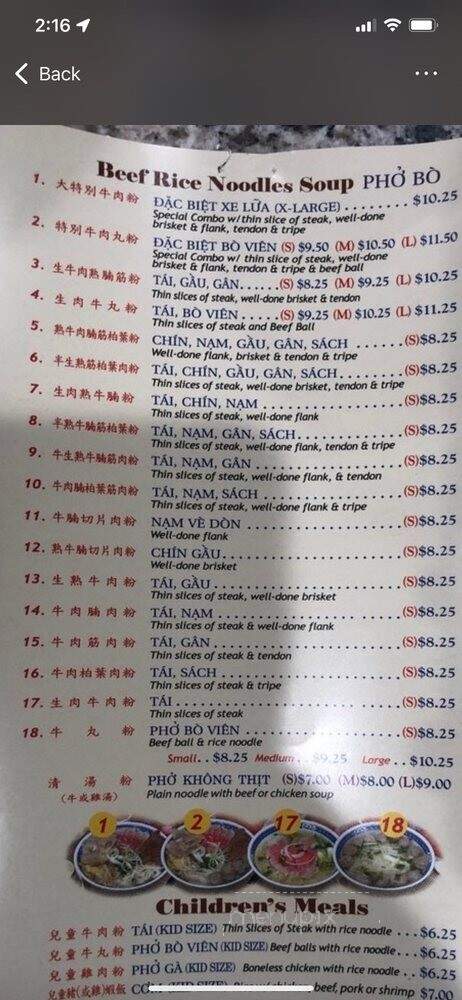 2:16
Back
Beef Rice Noodles Soup PHỞ BÒ
1. 大特別牛肉粉 ĐẶC BIỆT XE LỬA (X-LARGE) ........ $10.25
Special Combo w/ thin slice of steak, well-done
brisket & flank, tendon & tripe
2. 特別牛肉丸粉 ĐẶC BIỆT BÒ VIÊN (S) $9.50 (M) $10.50 (L) $11.50
Special Combo w/ thin slice of steak, well-done
brisket & flank, tendon & tripe & beef ball
3. 生牛肉熟腩筋粉 TÁI, GẦU, GÂN......(S) $8.25 (M) $9.25 (L) $10.25
Thin slices of steak, well-done brisket & tendon
4. 生肉牛丸粉 TÁI, BÒ VIÊN .....(S) $9.25 (M) $10.25 (L) $11.25
Thin slices of steak and Beef Ball
5. 熟牛肉腩筋柏葉粉 CHÍN, NẠM, GẦU, GÂN, SÁCH ......(S)$8.25
Well-done flank, brisket & tendon & tripe
6. 半生熟筋柏葉肉粉 TÁI, CHÍN, GẦU, GÂN, SÁCH.......(S)$8.25
Thin slices of steak, well-done brisket, tendon & tripe
7. 生肉熟牛腩粉 TÁI, CHÍN, NẠM ................(S)$8.25
Thin slices of steak, well-done flank
8. 半熟牛腩筋柏葉粉 TÁI, NẠM, GÂN, SÁCH............(S)$8.25
Thin slices of steak, well-done flank, tendon & tripe
9. 牛生熟牛腩筋肉粉 TÁI, NẠM, GÂN ................(S)$8.25
Thin slices of steak, well-done flank, & tendon
10. 牛肉腩柏葉筋肉粉 TÁI, NẠM, SÁCH ................(S)$8.25
Thin slices of steak, well-done flank & tripe
11. 牛腩切片肉粉 NẠM VÈ DÒN ..................(S)$8.25
Well-done flank
12. 熟牛腩切片肉粉 CHÍN GẦU.....................(S)$8.25
Well-done brisket
13. 生熟牛肉粉 TÁI, GẦU ......................(S)$8.25
Thin slices of steak, well-done brisket
14. 牛肉腩肉粉 TÁI, NẠM ......................(S)$8.25
Thin slices of steak & well-done flank
15. 牛肉筋肉粉 TÁI, GÂN ......................(S)$8.25
Thin slices of steak & tendon
16. 牛肉柏葉肉粉 TÁI, SÁCH .....................(S)$8.25
Thin slices of steak & tripe
17. 生肉牛肉粉 TÁI ..........................(S)$8.25
Thin slices of steak
18. 牛丸粉 PHỞ BÒ VIÊN ..................(S)$8.25
Beef ball & rice noodle
Small.. $8.25 Medium.. $9.25 Large.. $10.25
清湯粉 PHỞ KHÔNG THỊT (S)$7.00 (M)$8.00 (L)$9.00
(牛或雞湯) Plain noodle with beef or chicken soup
1 2 17 18
menupix
Children's Meals
兒童牛肉粉 TÁI (KID SIZE) Thin Slices of Steak with rice noodle ...$6.25
兒童牛丸粉 PHỞ BÒ VIÊN (KID SIZE) Beef balls with rice noodle...$6.25
兒童雞肉粉 PHỞ GÀ (KID SIZE) Boneless chicken with rice noodle..$6.25
beef, pork or shrimp $7.00